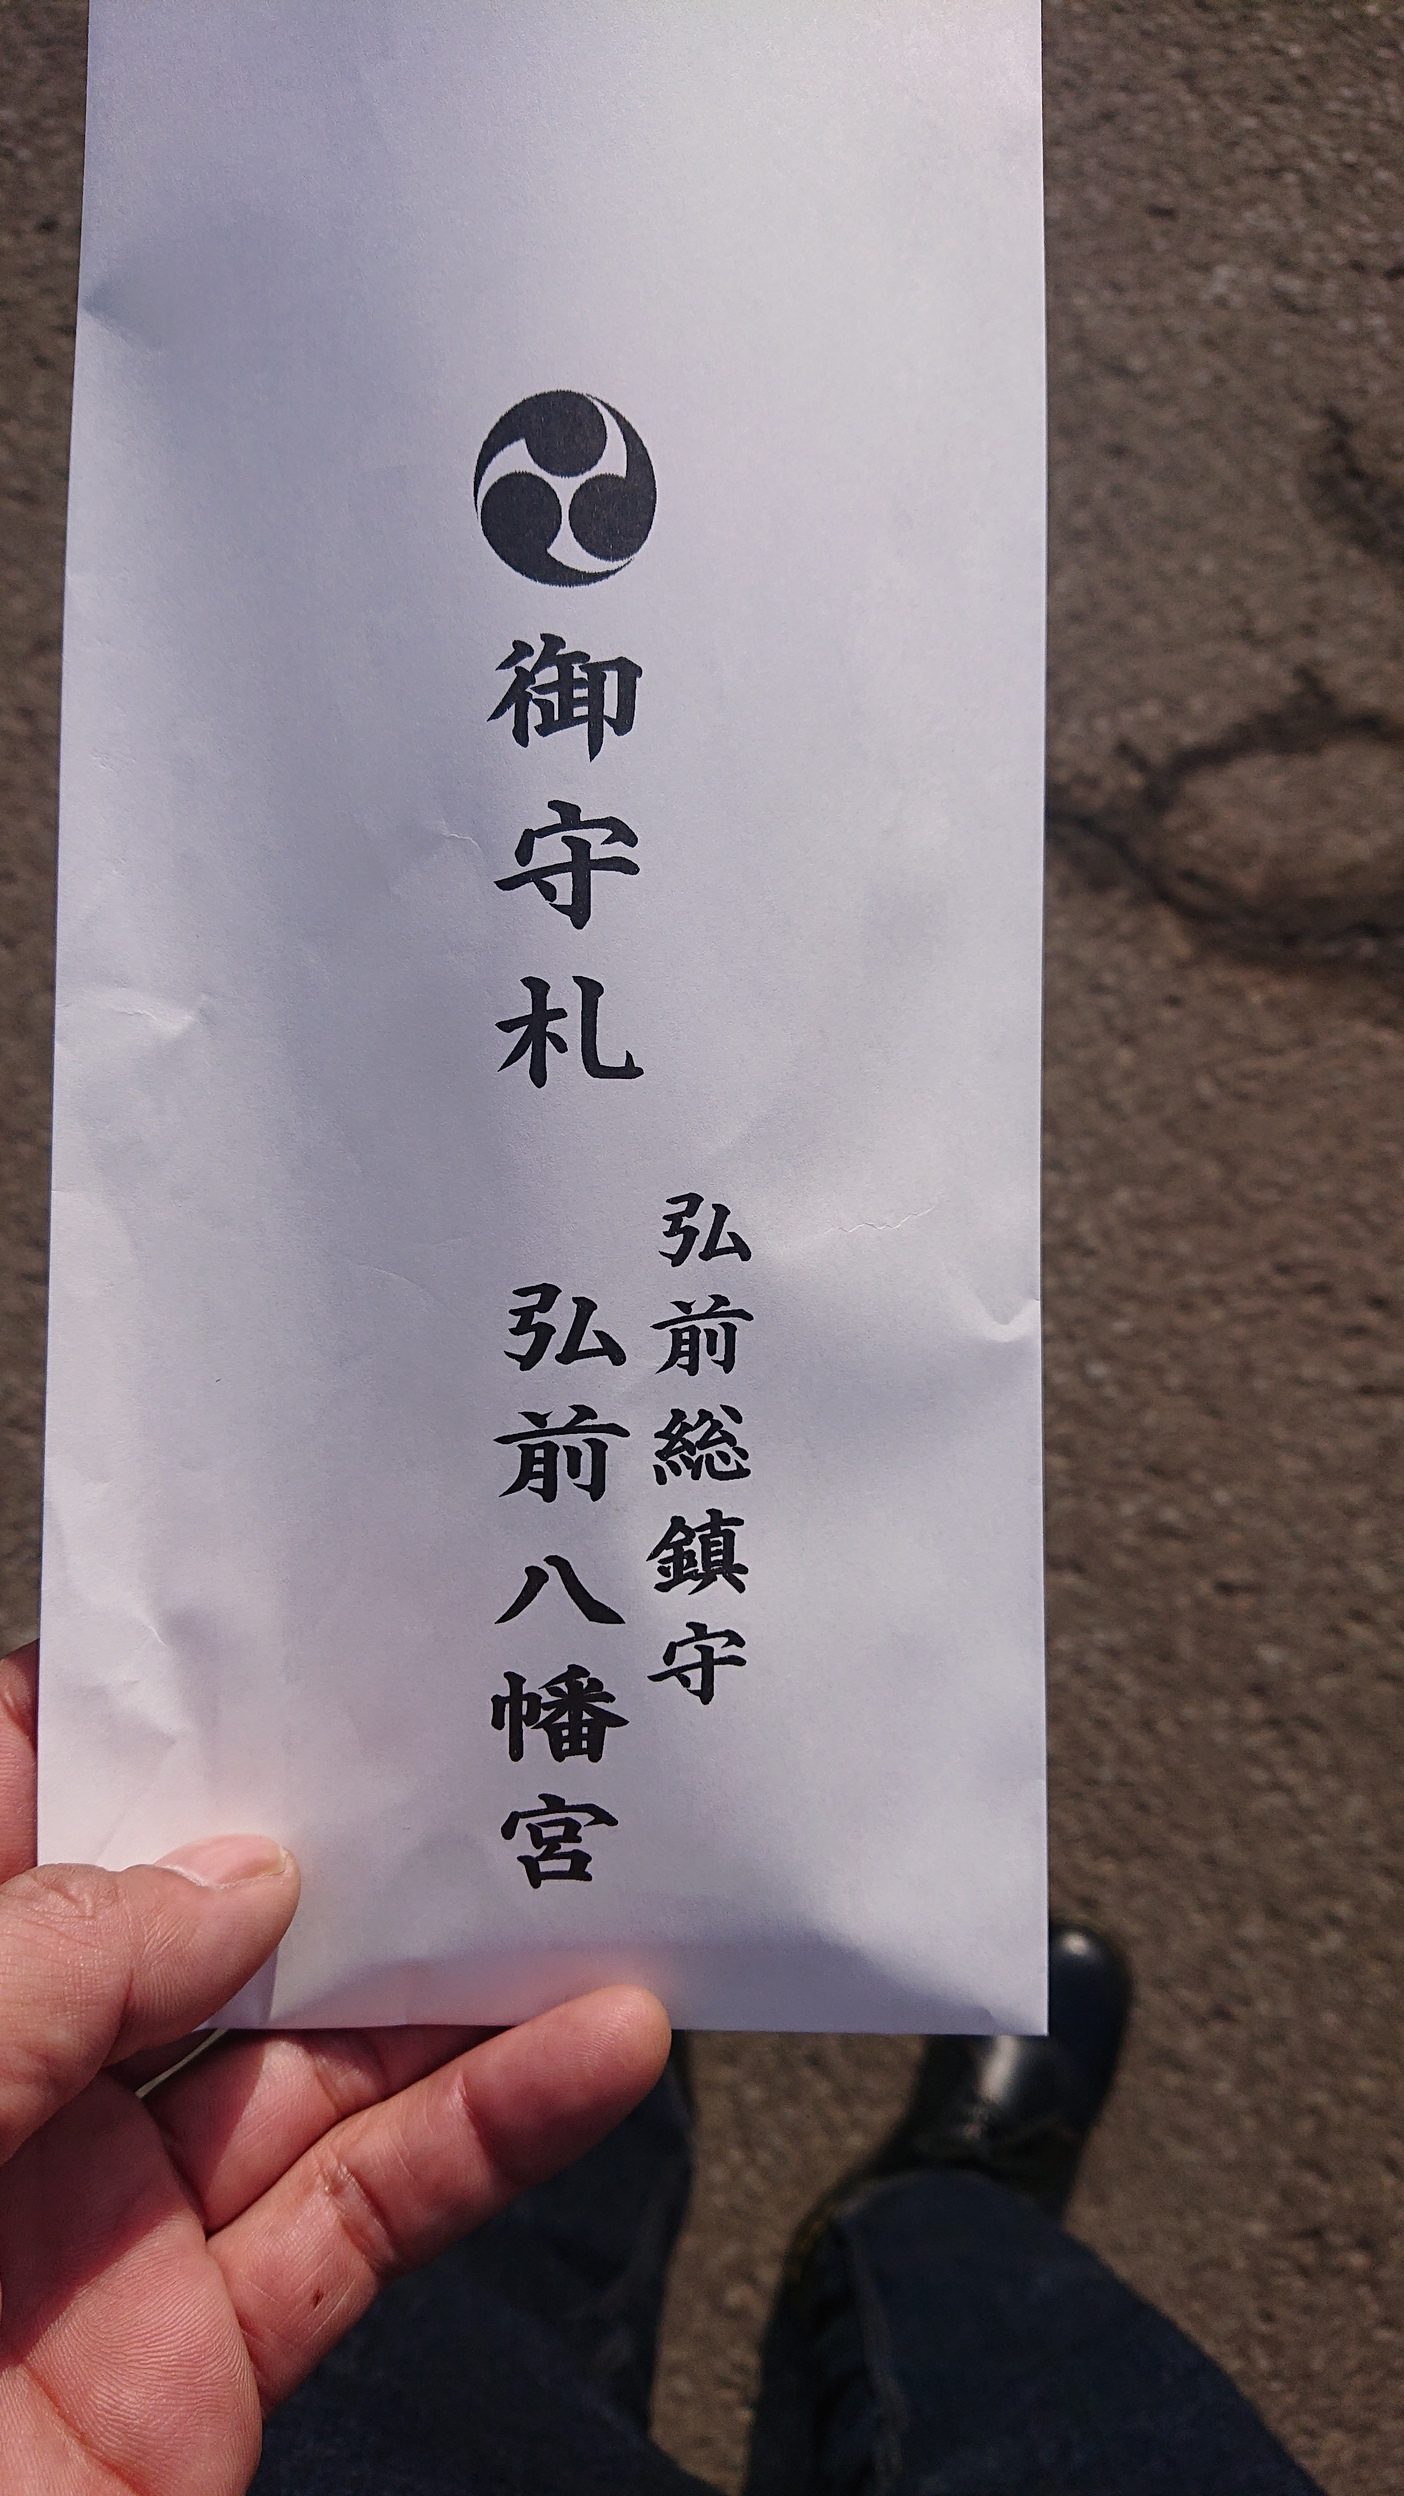 御守札
弘前総鎮守
弘前八幡宮